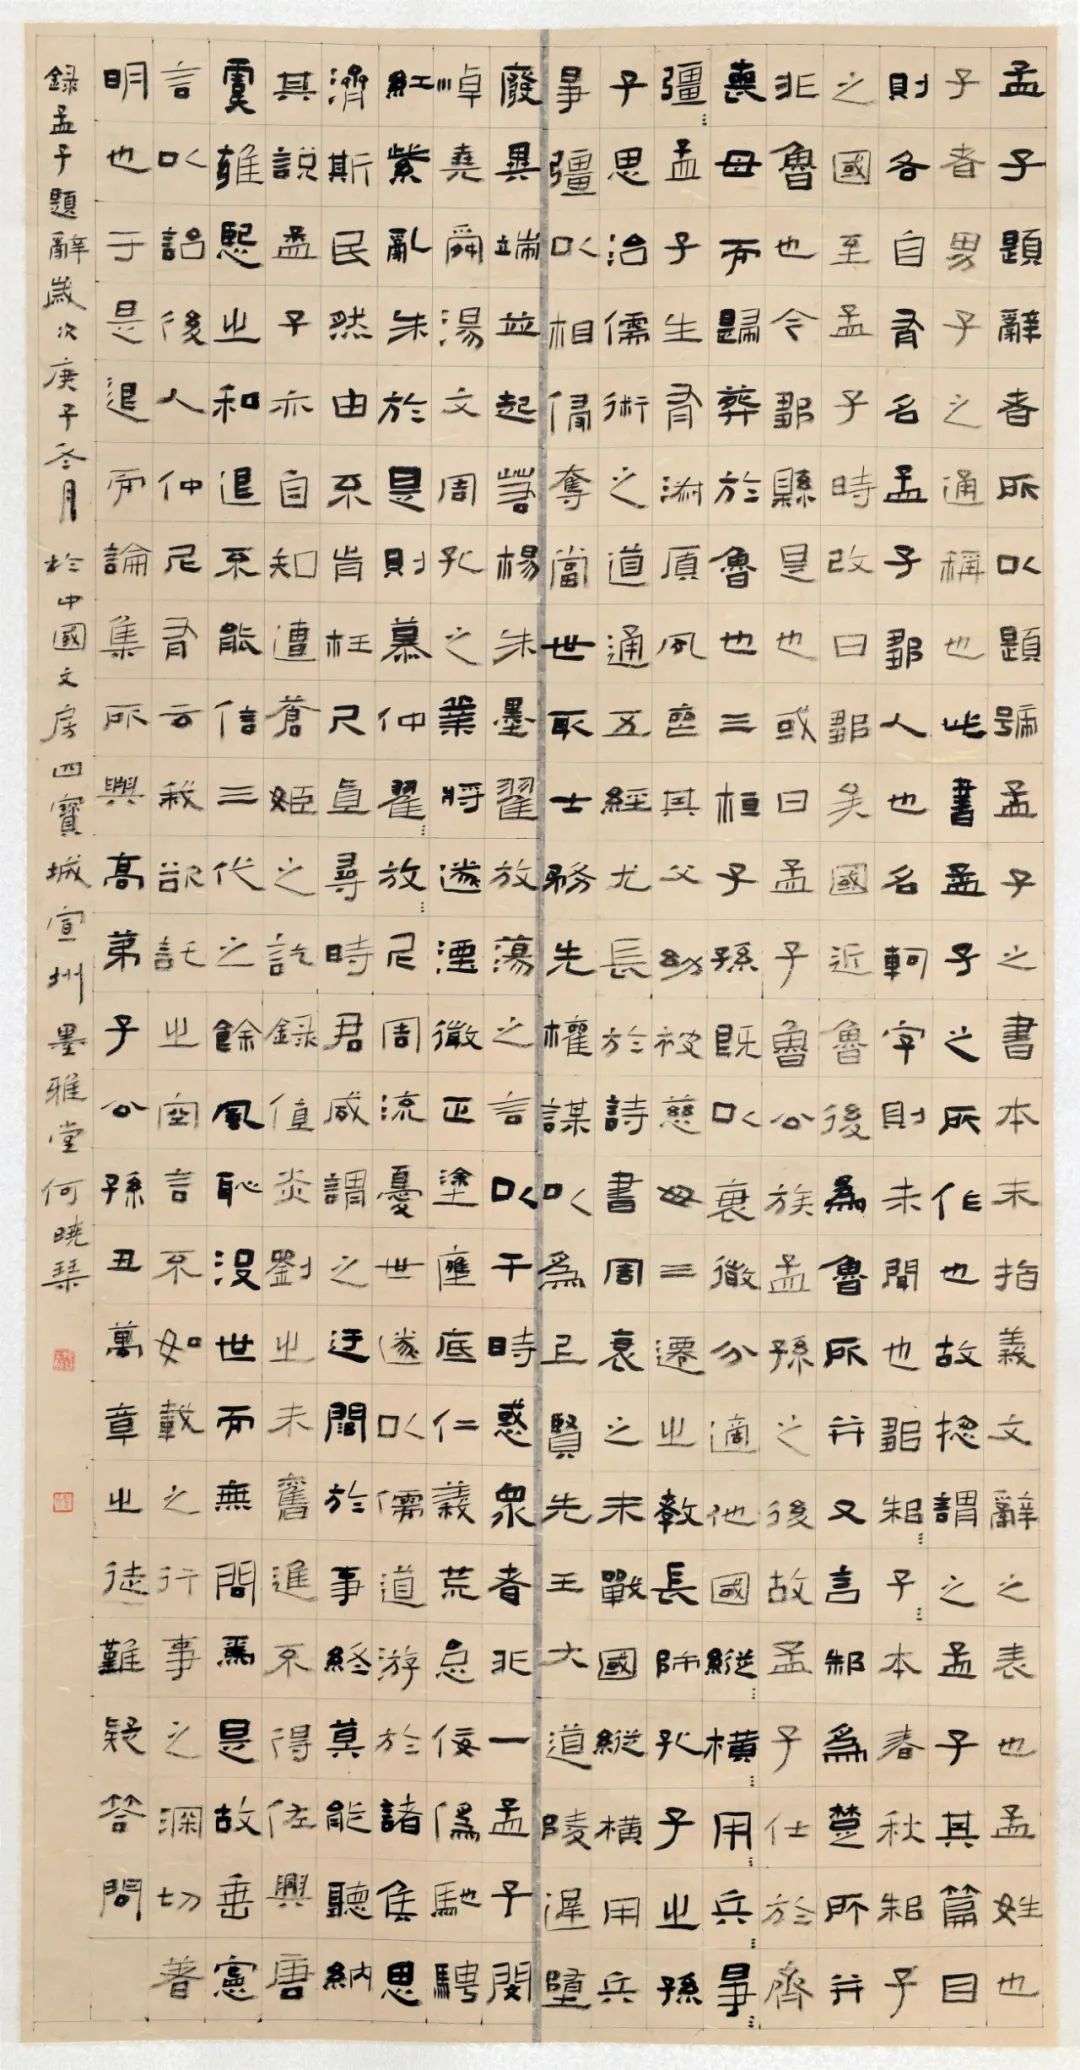 孟子題辭者所以題號孟子之書本末指義文辭之表也孟姓也
子者男子之通稱也此書孟子之所作也故揔謂之孟子其篇目
則各自有名孟子鄒人也名軻字則未聞也鄒邾子本春秋邾子
之國至孟子時改曰鄒矣國近魯後為魯所并又言邾為楚所并
非魯也今鄒縣是也或曰孟子魯公族孟孫之後故孟子仕於齊
喪母而歸葬於魯也三桓子孫既以衰微分適他國縱橫用兵爭
彊孟子生有淑質夙喪其父幼被慈母三遷之教長師孔子之孫
子思治儒術之道通五經尤長於詩書周衰之末戰國縱橫用兵
爭彊以相侵奪當世取士務先權謀以為上賢先王大道陵遲墮
廢異端並起若楊朱墨翟放蕩之言以干時惑眾者非一孟子閔
悼堯舜湯文周孔之業將遂湮微正塗壅底仁義荒怠佞偽馳騁
紅紫亂朱於是則慕仲翟放尼周流憂世遂以儒道游於諸侯思
濟斯民然由不肯枉尺直尋時君咸謂之迂闊於事終莫能聽納
其說孟子亦自知遭蒼姬之訖錄值炎劉之未奮進不得佐興唐
虞雍熙之和退不能信三代之餘風恥沒世而無聞焉是故垂憲
言以詒後人仲尼有云我欲託之空言不如載之行事之深切著
明也于是退而論集所與高弟子公孫丑萬章之徒難疑答問
錄孟子題辭歲次庚子冬月於中國文房四寶城宣州墨雅堂何曉琴